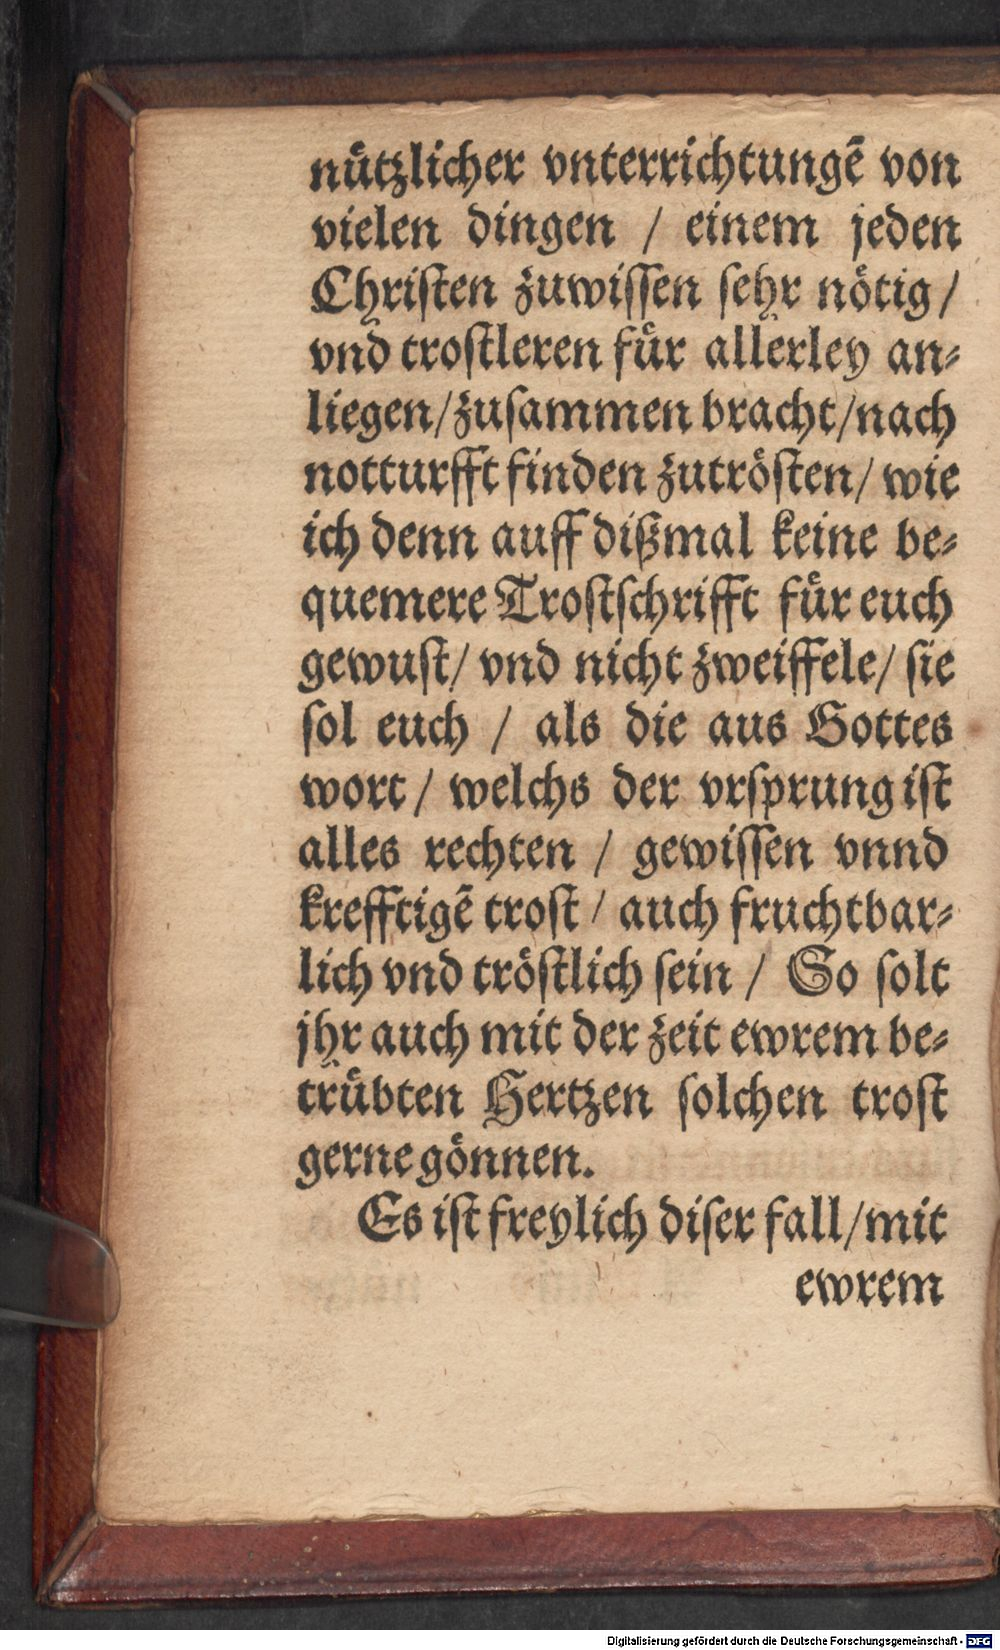 nützlicher vnterrichtungē von
vielen dingen / einem jeden
Chriſten zuwiſſen ſehr nötig /
vnd troſtleren für allerley an⸗
liegen / zuſammen bracht / nach
notturfft finden zutröſten / wie
ich denn auff dißmal keine be⸗
quemere Troſtſchrifft für euch
gewuſt / vnd nicht zweiffele / ſie
ſol euch / als die aus Gottes
wort / welchs der vrſprung iſt
alles rechten / gewiſſen vnnd
krefftigē troſt / auch fruchtbar⸗
lich vnd tröſtlich ſein / So ſolt
jhr auch mit der zeit ewrem be⸗
trübten Hertzen ſolchen troſt
gerne gönnen.
Es iſt freylich diſer fall / mit
ewrem
Digitalisierung gefördert durch die Deutsche Forschungsgemeinschaft - DFG